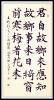 君自故鄉來應知
故鄉事來日綺窗
前寒梅著花未